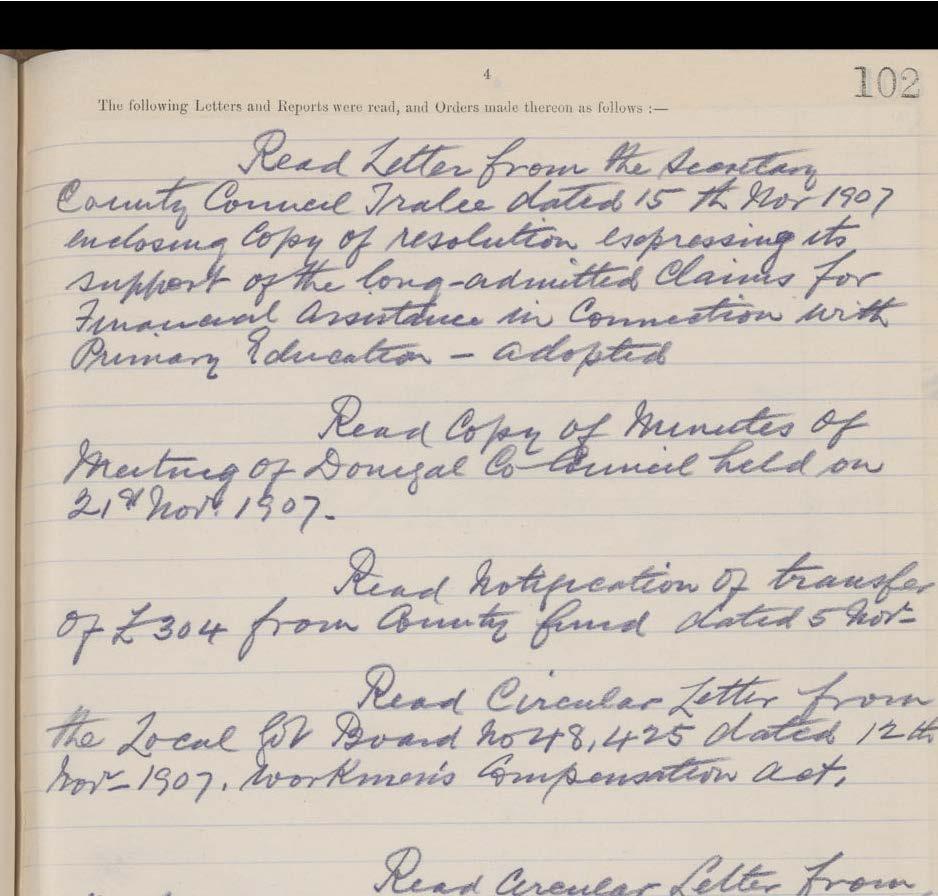 4
102
The following Letters and Reports were read, and Orders made thereon as follows :—
Read Letter from the Secretary
County Council Tralee dated 15th Nov 1907
enclosing Copy of resolution expressing its
support of the long-admitted Claims for
Financial Assistance in Connection with
Primary Education – adopted
Read Copy of Minutes of
Meeting of Donegal Co Council held on
21st Nov. 1907.
Read Notification of transfer
of £304 from County fund dated 5 Nov-
Read Circular Letter from
the Local Govt Board No 48,425 dated 12th
Nov- 1907. Workmen's Compensation Act.
Read Circular Letter from